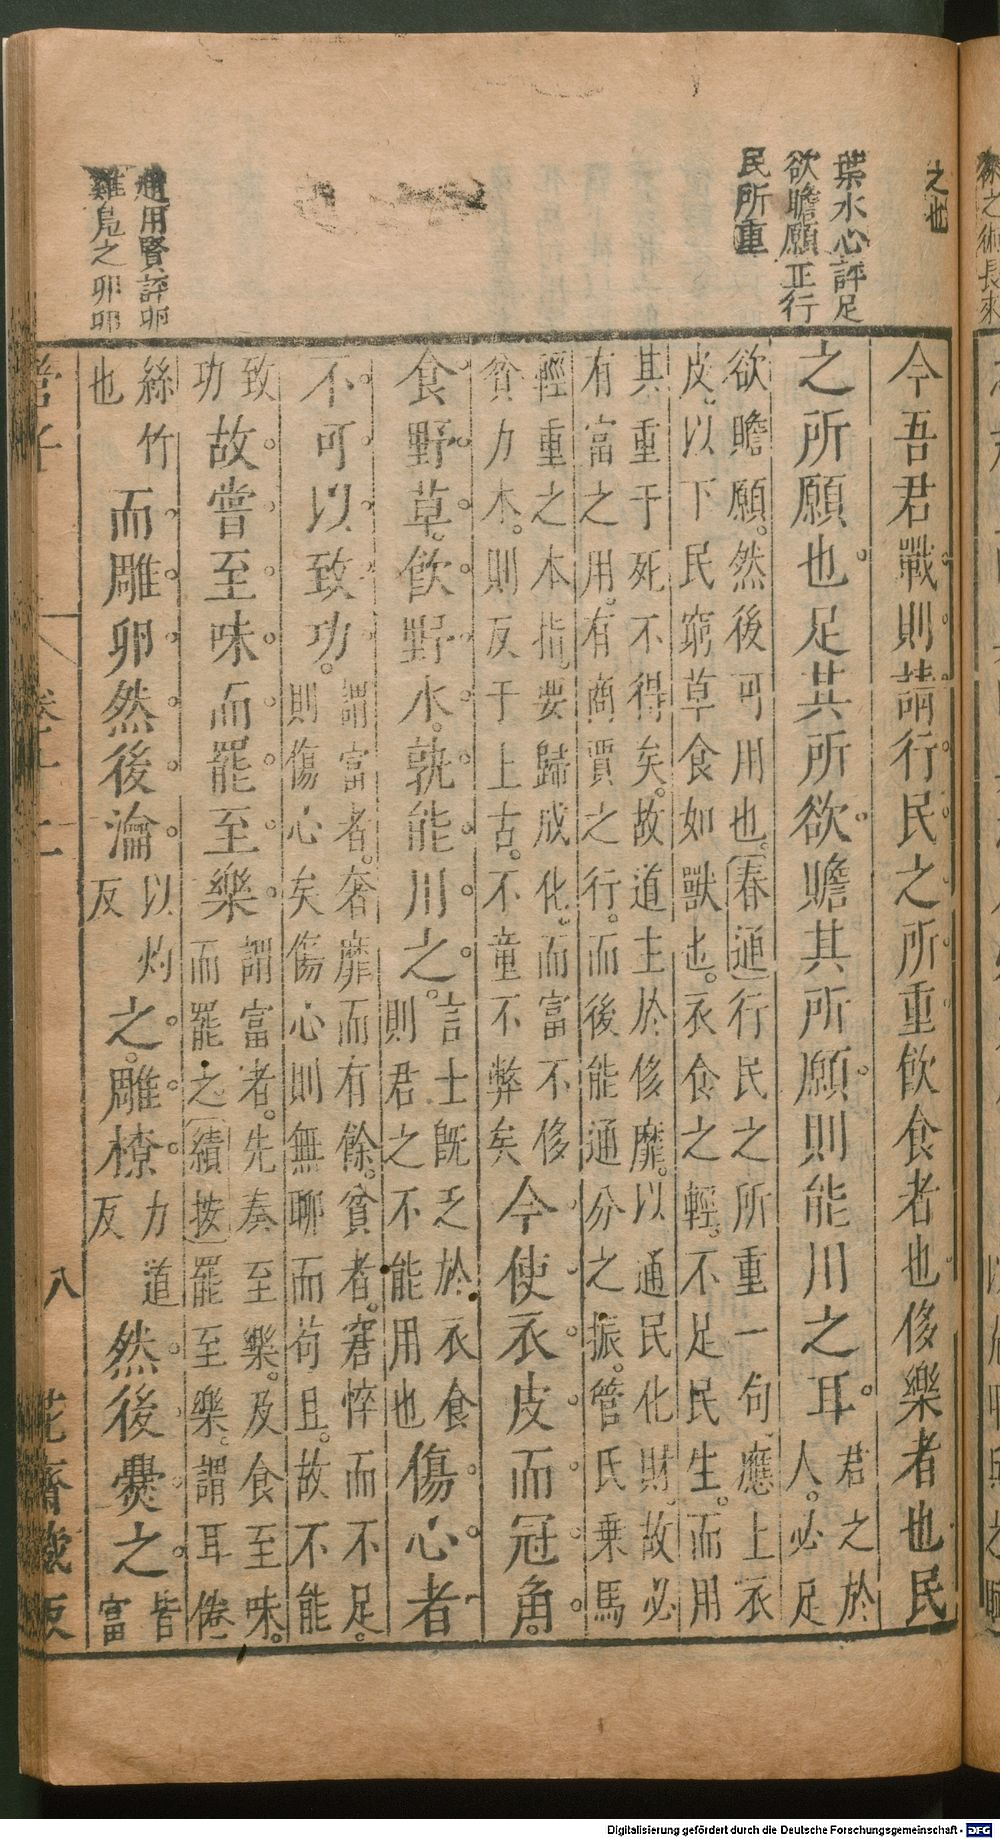 之也
葉水心評足
欲贍願正行
民所重
趙用賢評卵
雞鳧之卵卵
今吾君戰則請行民之所重飲食者也侈樂者也民
之所願也。足其所欲。贍其所願。則能用之耳。
君之於
人。必足
欲贍願。然後可用也。春通行民之所重一句。應上衣
皮。以下民窮草食如獸也。衣食之輕。不足民生。而用
其重于死不得矣。故道主於侈靡。以通民化財。故必
有富之用。有商賈之行。而後能通分之振。管氏乘馬
輕重之本指。要歸成化。而富不侈
貧力本。則反于上古。不童不弊矣
今使衣皮而冠角。
食野草。飲野水。孰能用之。
言士既乏於衣食
則君之不能用也
傷心者
不可以致功。
謂富者。奢靡而有餘。貧者。窘悴而不足。
則傷心矣傷心則無聊而苟且。故不能
致
功
故嘗至味而罷至樂
謂富者。先奏至樂。及食至味。
而罷之績按罷至樂。謂耳倦
絲竹
也
而雕卵然後瀹
以灼
反
之。雕橑
力道
反
然後爨之。
皆
富
管子
八
花齋藏版
Digitalisierung gefördert durch die Deutsche Forschungsgemeinschaft - DFG